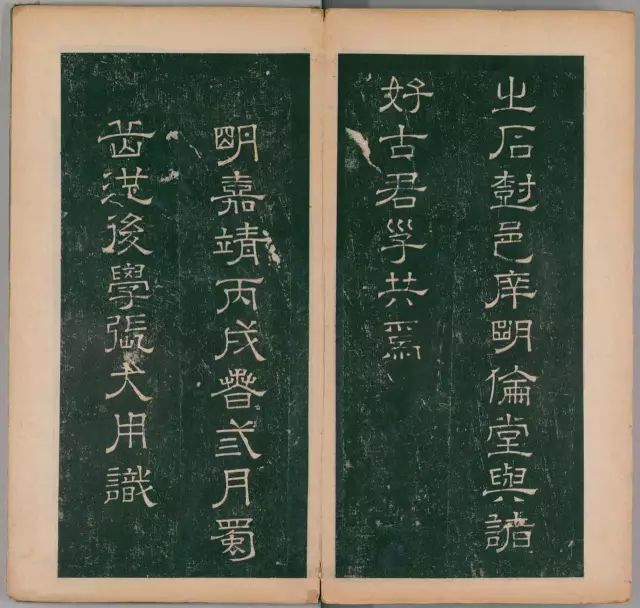 之石尌邑庠朙倫堂與諸
好古君子共焉
朙嘉靖丙戌春弍月蜀
後學張大用識